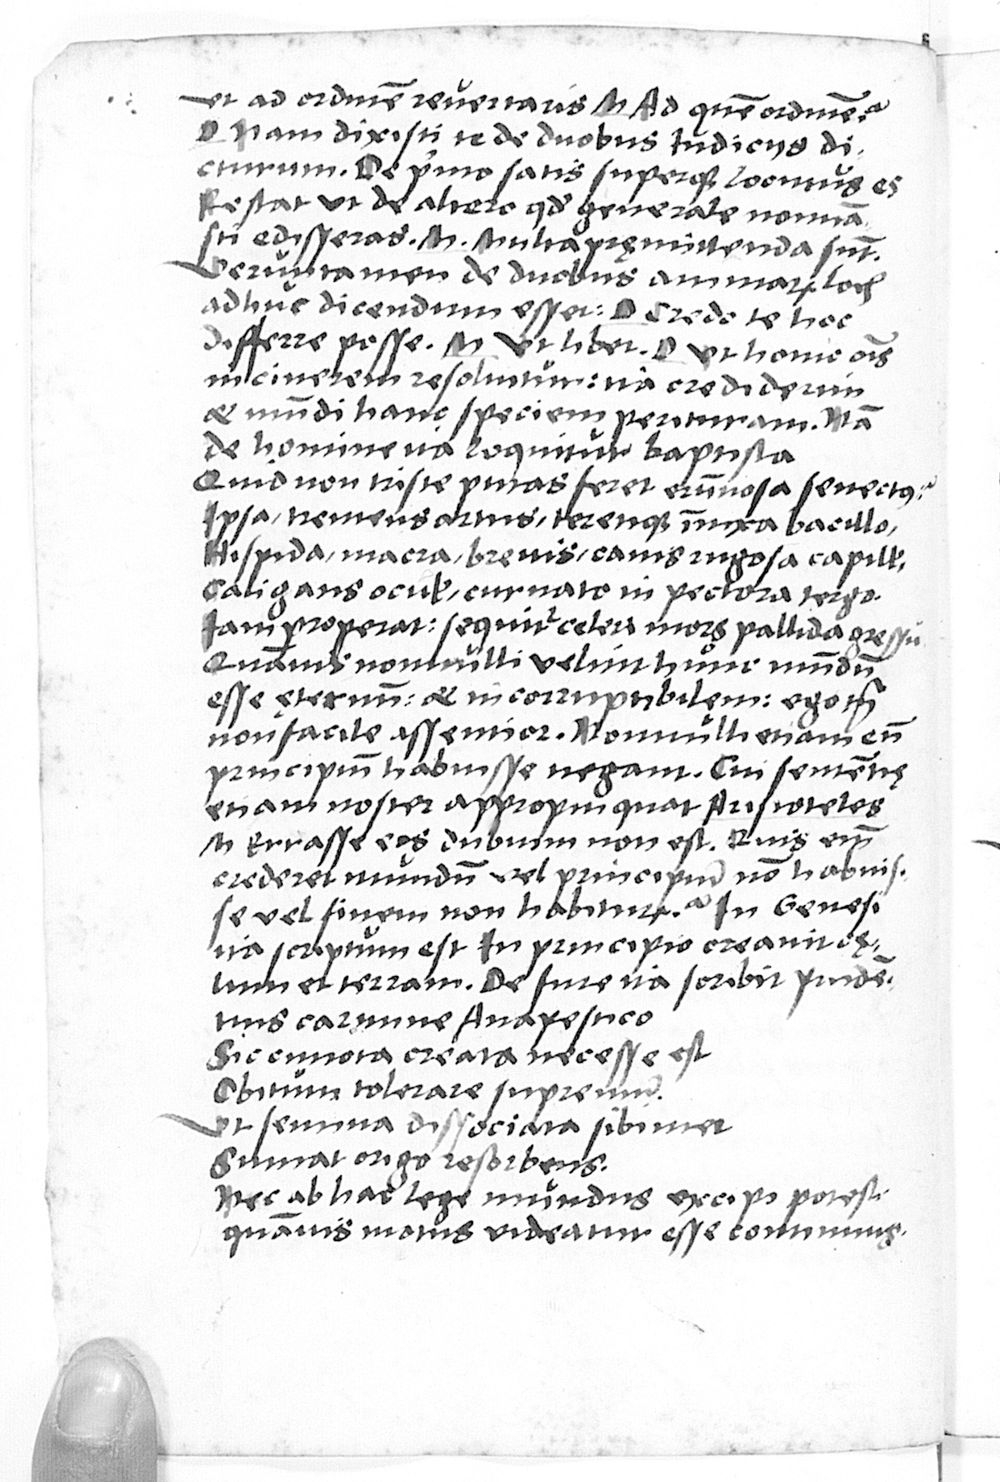 ut ad ordinē reuertaris M Ad quē ordinē?
D Nam dixisti te de duobus Iudicijs di,
cturum. De p̄mo satis superq; locutus es
Restat vt de altero qd̄ generale nominā
sti edisseras. M. Multa pręmittenda sūt.
Veruntamen de duobus animarꝝ locis
adhuc dicendum esset: D Credo te hoc
differre posse. M Vt libet. D Vt homo oīs
in cinerem resoluitur: ita crediderim
& mūdi hanc speciem perituram. Nā
de homine ita loquitur baptista
Quid non triste putas feret erūnosa senectus?
Ipsa, tremens artus, terenq; īnixa bacillo,
Hispida, macra, breuis, canis rugosa capill',
Caligans ocul', curuato in pectora tergo.
Iam properat: sequitr celeri mors pallida gressu
Quāuis nonnulli velint hunc mūdū
esse ęternū: & incorruptibilem: ego tn̄
non facile assentior. Nonnulli etiam eū
principiū habuisse negant. Cui sentētię
etiam noster appropinquat Aristoteles
M Errasse eos dubium non est. Quis eni͞
crederet mundū vel principiū nō habuis.
se vel finem non habiturꝝ? In Genesi
ita scriptum est In principio creauit cę,
lum et terram. De fine ita scribit prudē.
tius carmine Anapestico
Sic cuncta creata necesse est
Obitum tolerare supremū.
Vt semina dissociata sibimet
Sumat origo resorbens.
Nec ab hac lege mundus excipi potest.
quāuis motus videatur esse continuus.